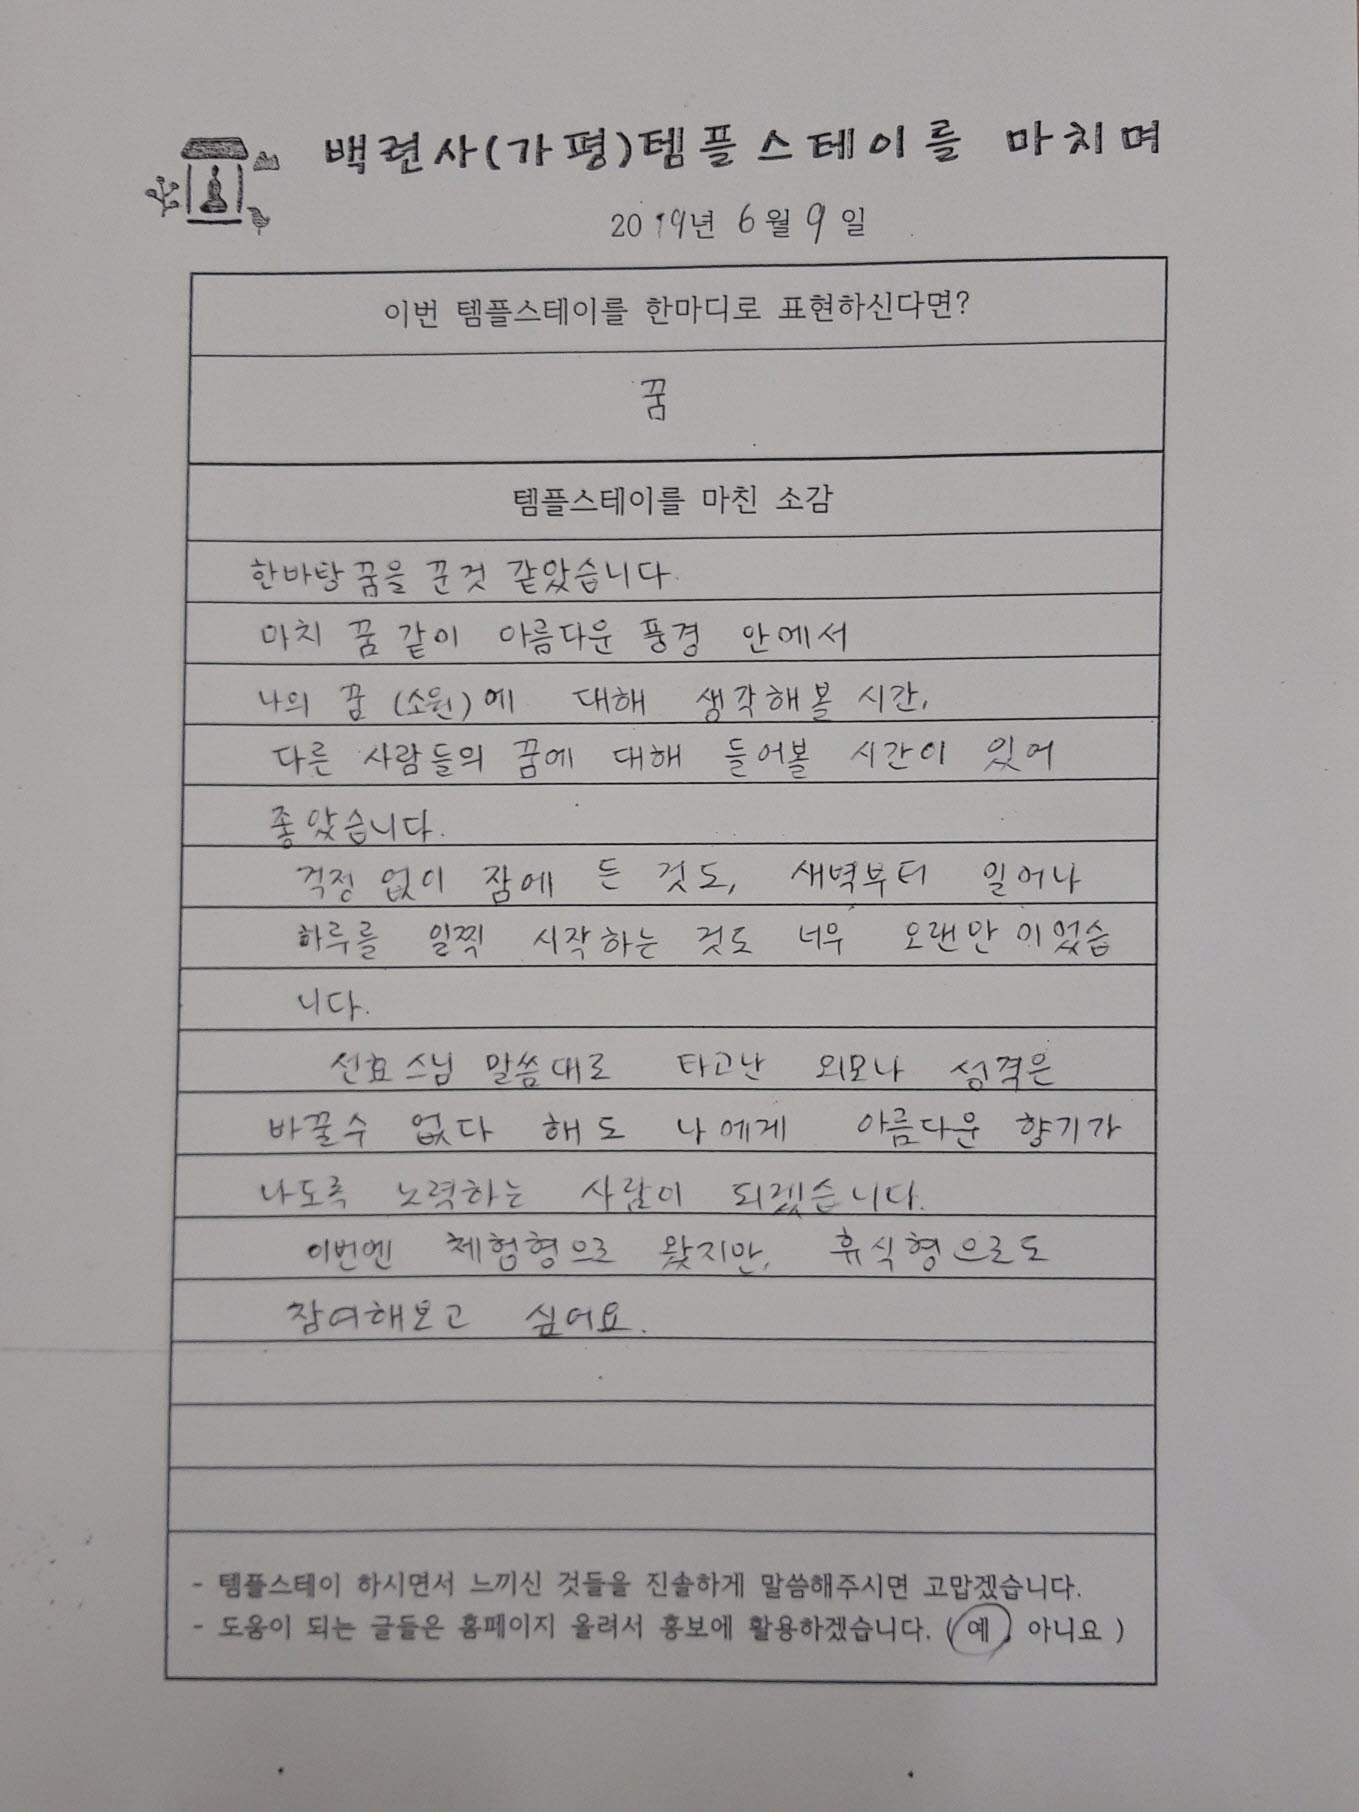 백련사(가평)템플스테이를 마치며
2019년 6월 9일
이번 템플스테이를 한마디로 표현하신다면?
꿈
템플스테이를 마친 소감
한바탕 꿈을 꾼것 같았습니다.
마치 꿈 같이 아름다운 풍경 안에서
나의 꿈 (소원)에 대해 생각해볼 시간,
다른 사람들의 꿈에 대해 들어볼 시간이 있어
좋았습니다.
걱정 없이 잠에 든 것도, 새벽부터 일어나
하루를 일찍 시작하는 것도 너무 오랜만이었습
니다.
선효스님 말씀대로 타고난 외모나 성격은
바꿀수 없다 해도 나에게 아름다운 향기가
나도록 노력하는 사람이 되겠습니다.
이번엔 체험형으로 왔지만, 휴식형으로도
참여해보고 싶어요.
- 템플스테이 하시면서 느끼신 것들을 진솔하게 말씀해주시면 고맙겠습니다.
- 도움이 되는 글들은 홈페이지 올려서 홍보에 활용하겠습니다. ( 예 , 아니요 )